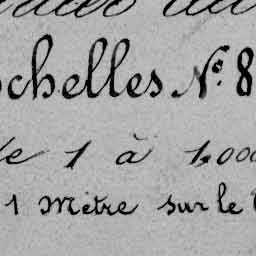 chelles N° 8
de 1 à 1.000
1 Mètre sur le